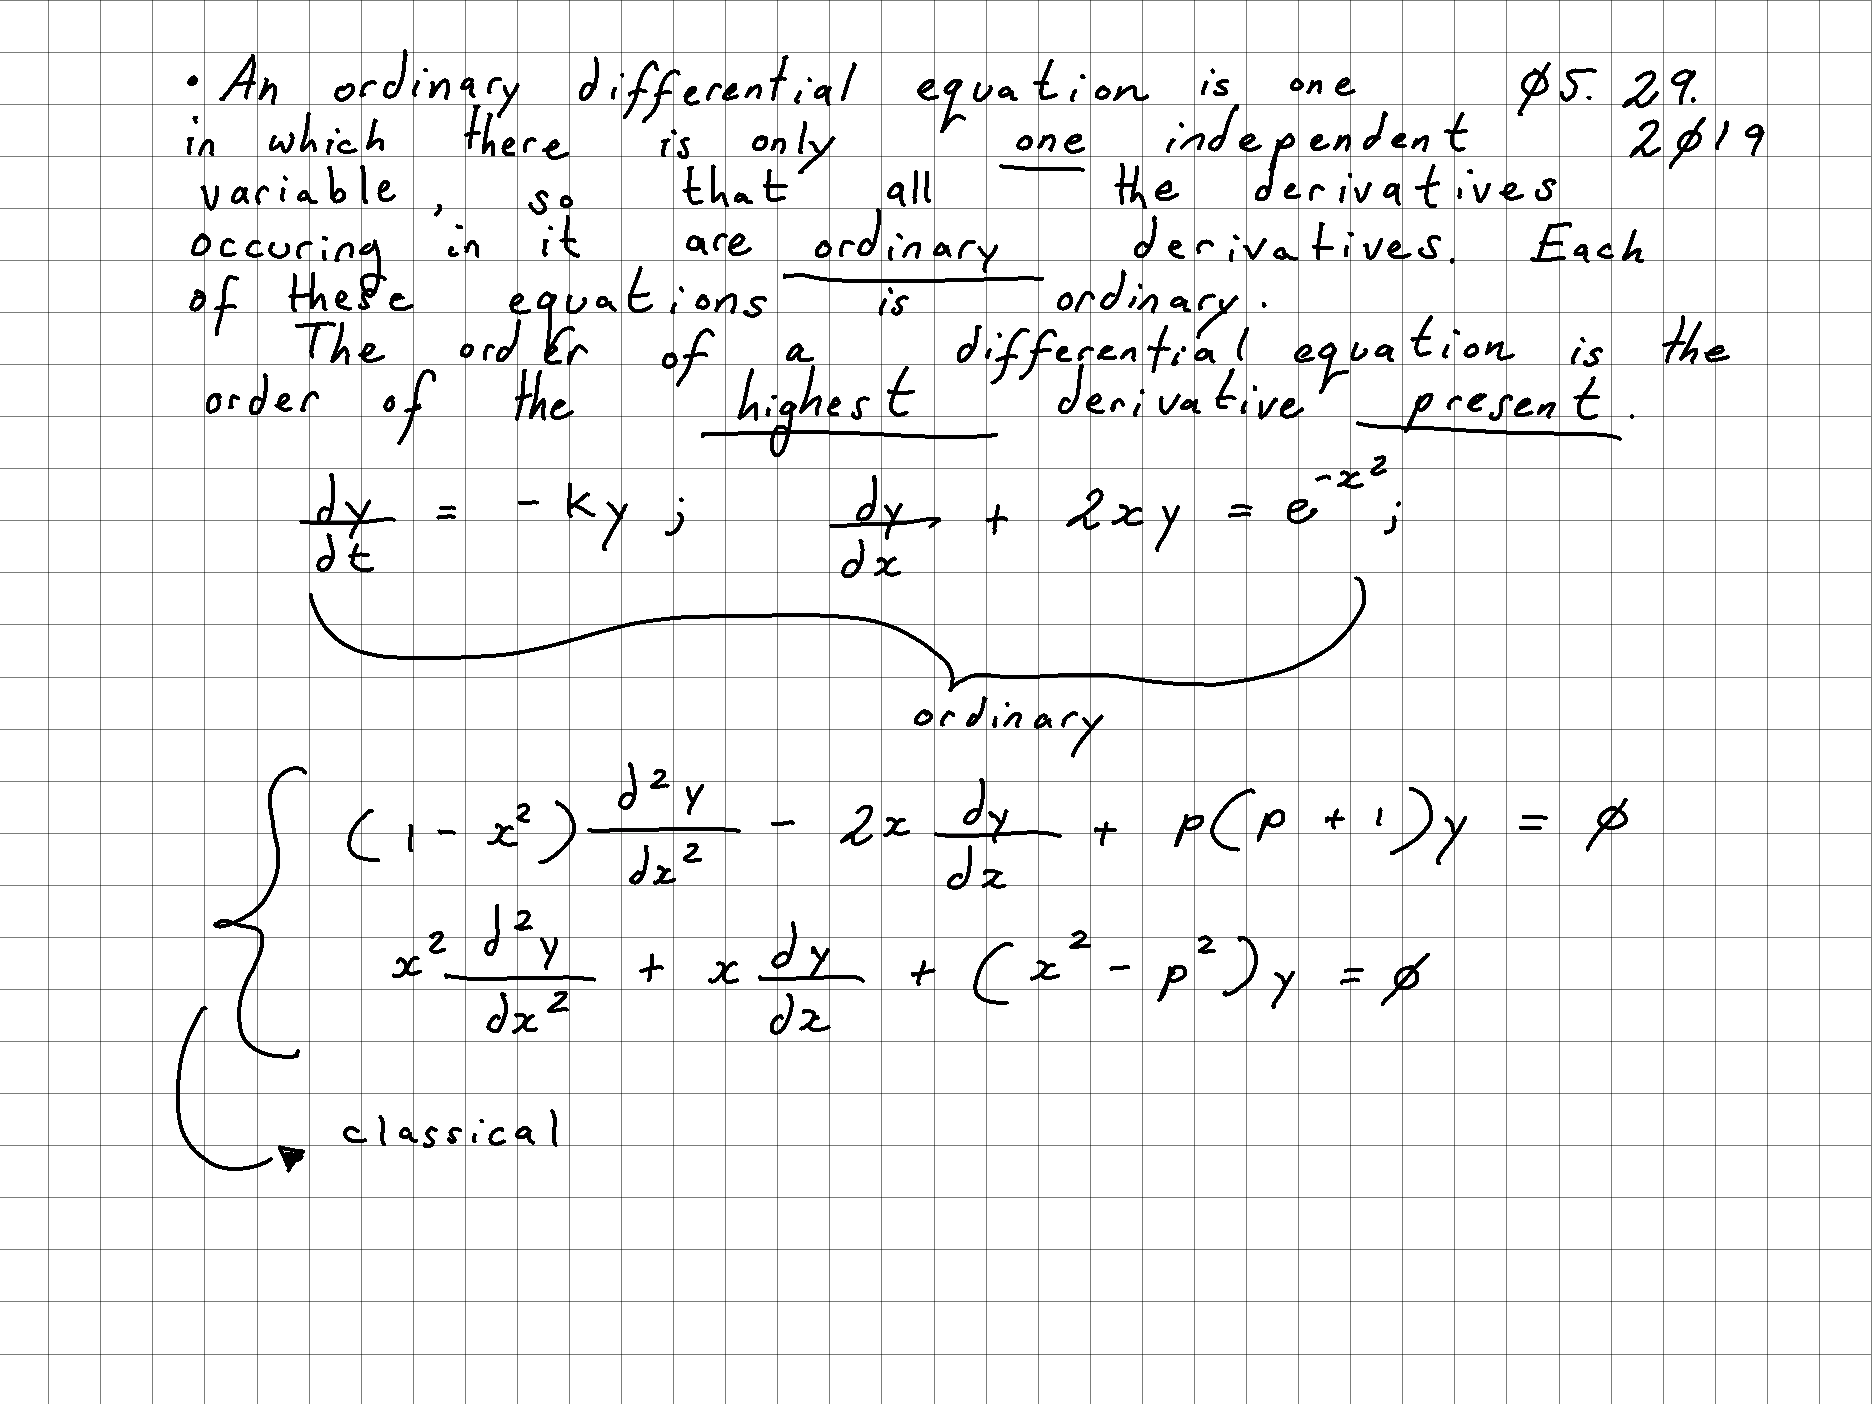 • An ordinary differential equation is one Ø5. 29.
in which there is only one independent 2Ø19
variable, so that all the derivatives
occuring in it are ordinary derivatives. Each
of these equations is ordinary.
The order of a differential equation is the
order of the highest derivative present.
dy/dt = -ky ; dy/dx + 2xy = e^{-x^2};
ordinary
(1 - x^2) d^2y/dx^2 - 2x dy/dx + p(p + 1)y = Ø
x^2 d^2y/dx^2 + x dy/dx + (x^2 - p^2)y = Ø
classical